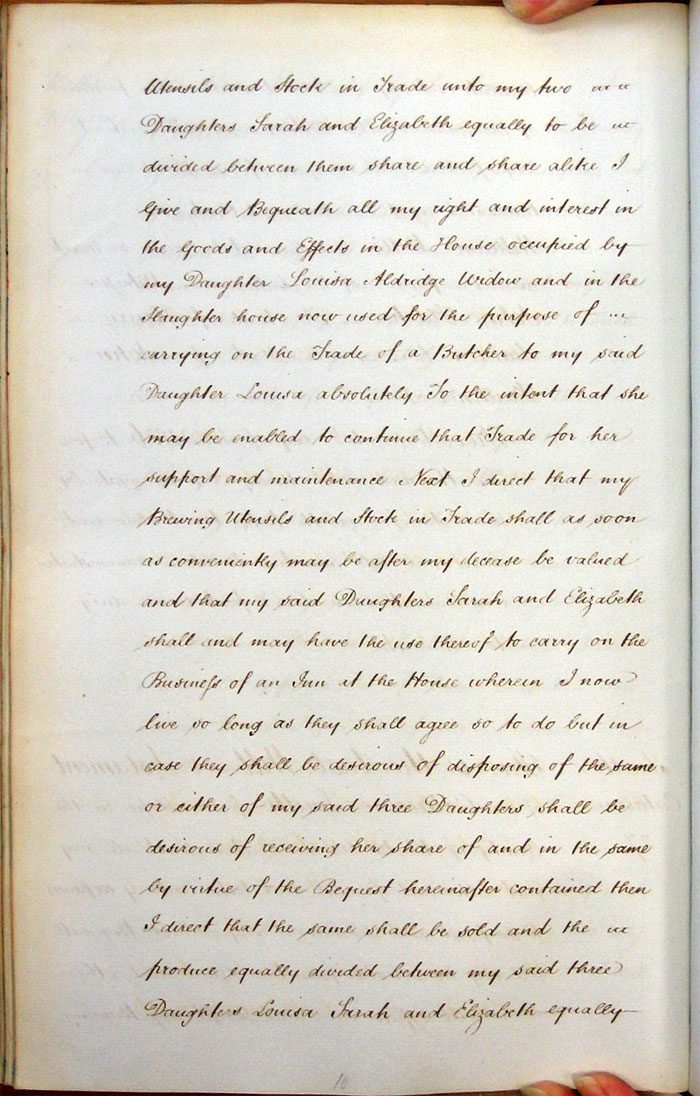 Utensils and Stock in Trade unto my two
Daughters Sarah and Elizabeth equally to be
divided between them share and share alike I
Give and Bequeath all my right and interest in
the Goods and Effects in the House occupied by
my Daughter Louisa Aldridge Widow and in the
Slaughter house now used for the purpose of
carrying on the Trade of a Butcher to my said
Daughter Louisa absolutely To the intent that she
may be enabled to continue that Trade for her
support and maintenance Next I direct that my
Brewing Utensils and Stock in Trade shall as soon
as conveniently may be after my decease be valued
and that my said Daughters Sarah and Elizabeth
shall and may have the use thereof to carry on the
Business of an Inn at the House wherein I now
live so long as they shall agree so to do but in
case they shall be desirous of disposing of the same
or either of my said three Daughters shall be
desirous of receiving her share of and in the same
by virtue of the Bequest hereinafter contained then
I direct that the same shall be sold and the
produce equally divided between my said three
Daughters Louisa Sarah and Elizabeth equally
10